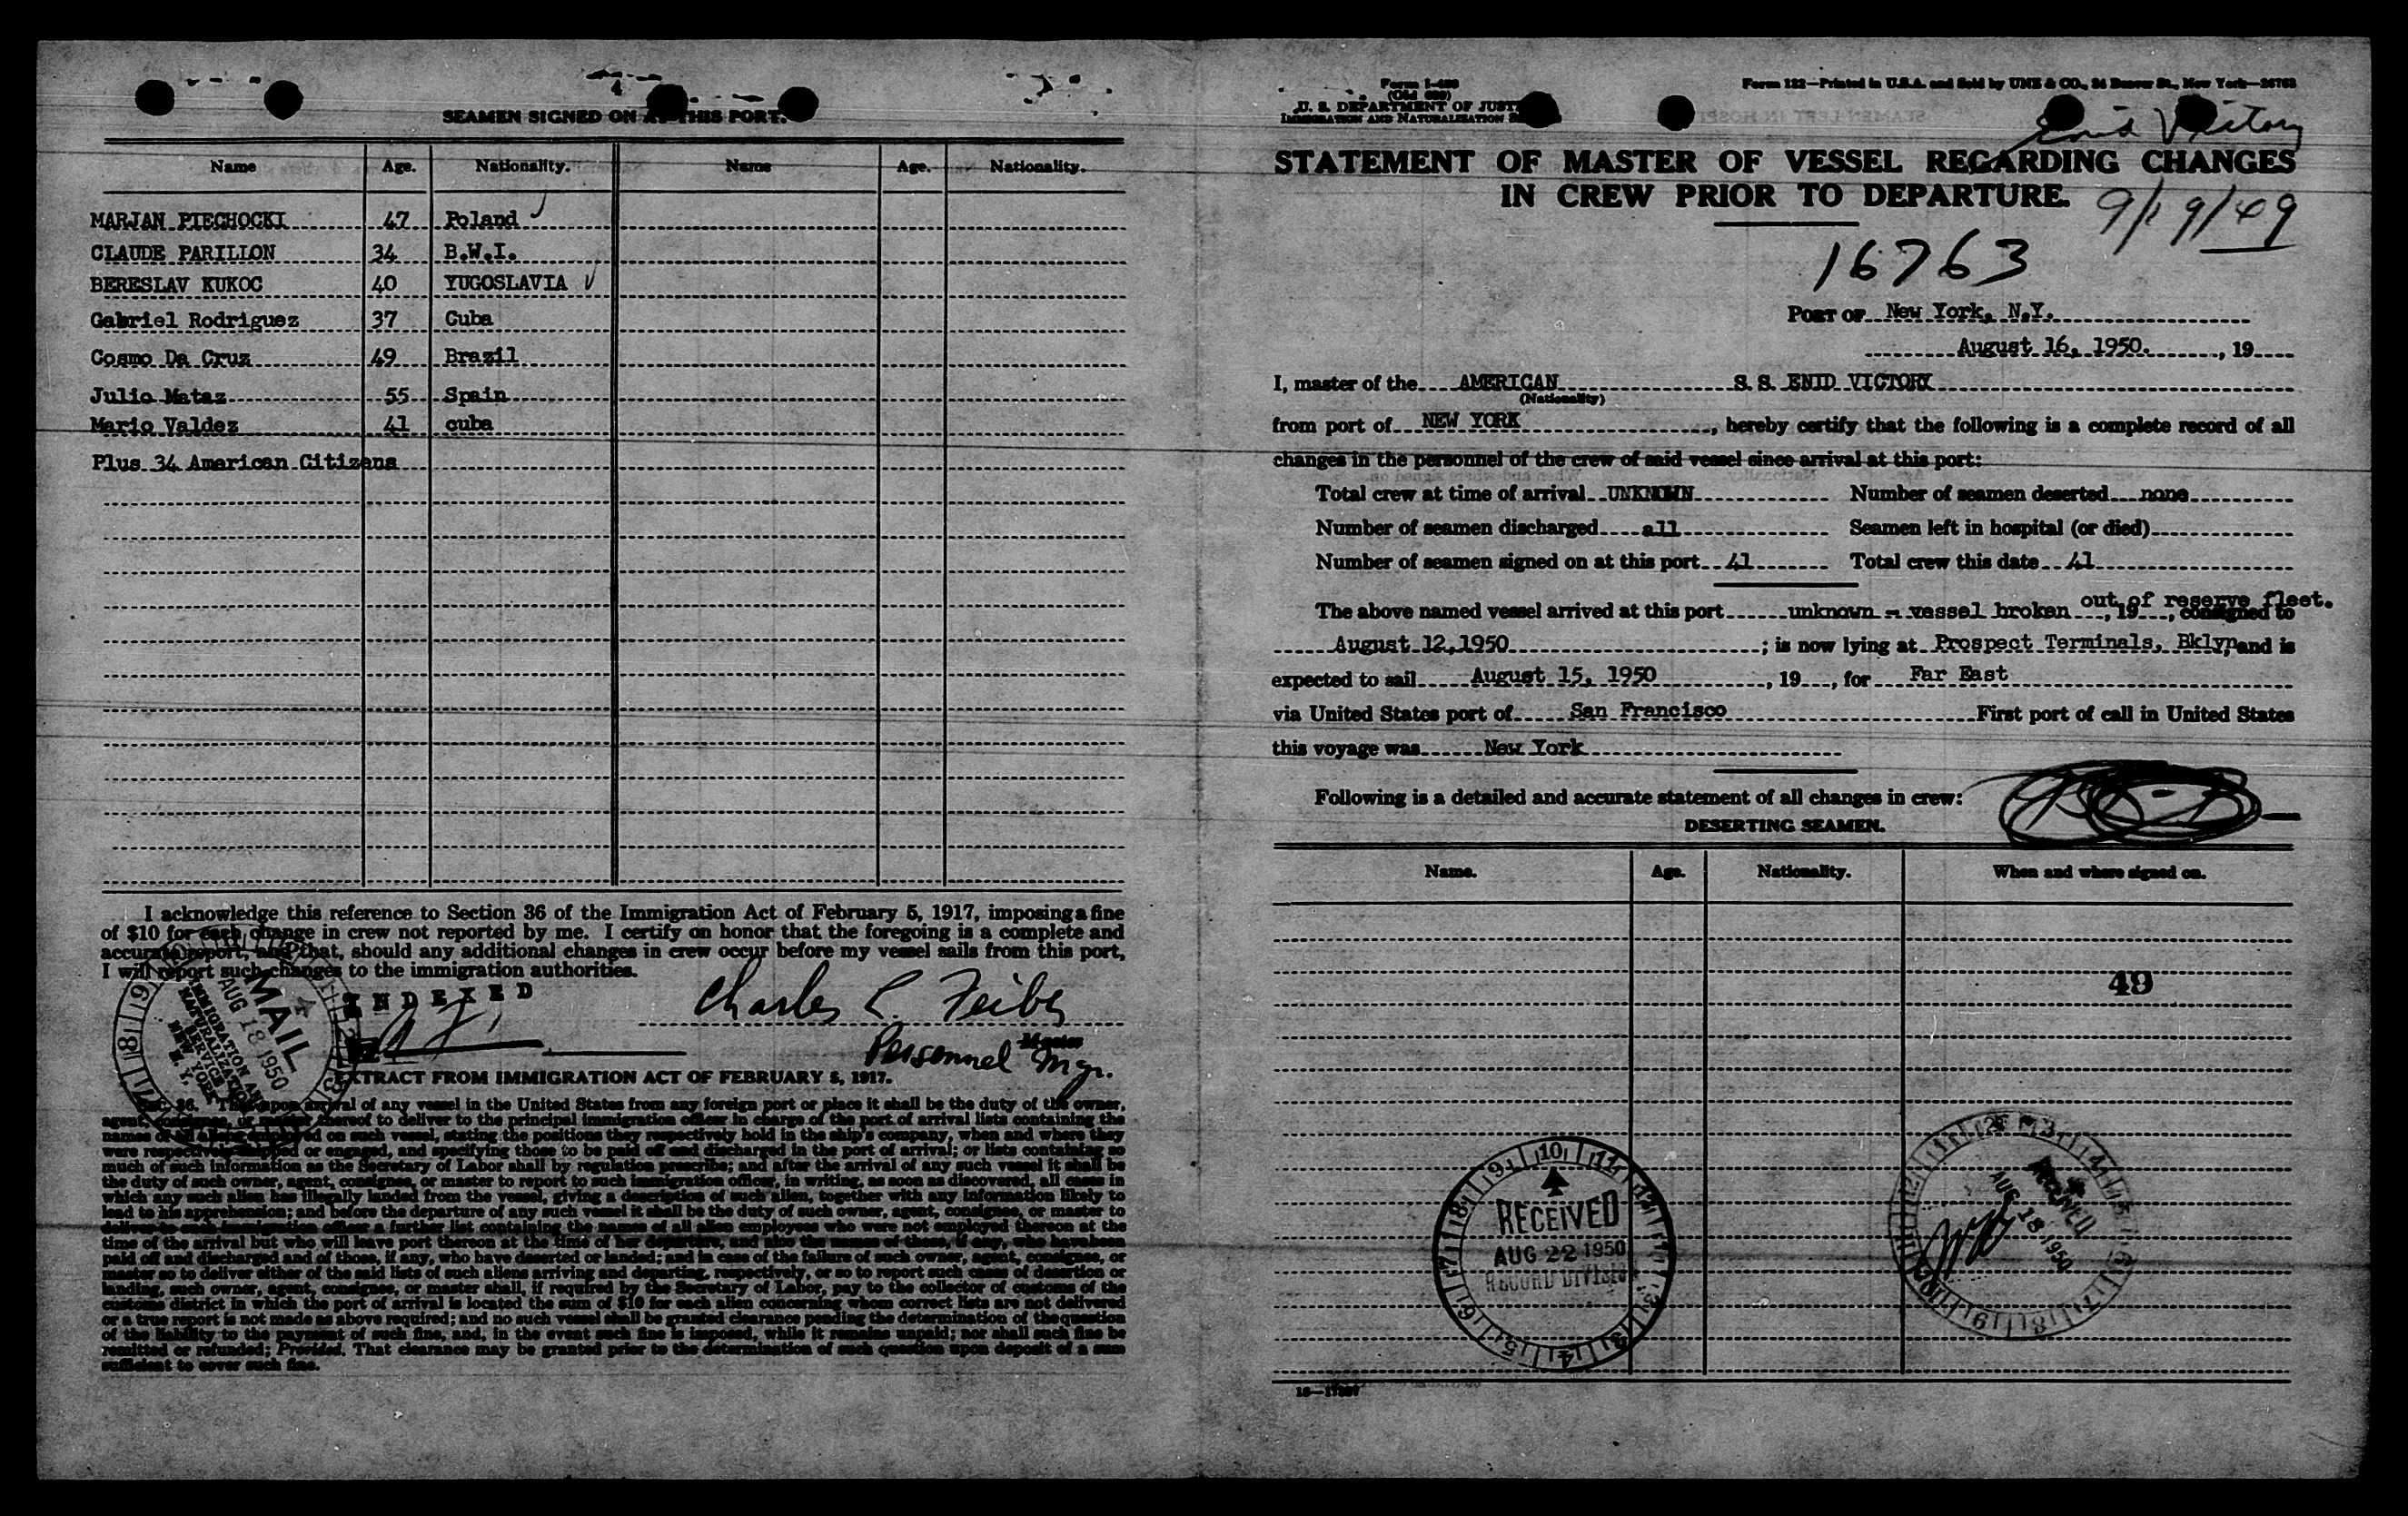 SEAMEN SIGNED ON AT THIS PORT.
Name Age. Nationality. Name Age. Nationality.
MARJAN PIECHOCKI 47 Poland
CLAUDE PARILLON 34 B.W.I.
BERESLAV KUKOC 40 YUGOSLAVIA
Gabriel Rodriguez 37 Cuba
Cosmo Da Cruz 49 Brazil
Julio Mataz 55 Spain
Mario Valdez 41 cuba
Plus 34 American Citizens
I acknowledge this reference to Section 36 of the Immigration Act of February 5, 1917, imposing a fine
of $10 for each change in crew not reported by me. I certify on honor that the foregoing is a complete and
accurate report, and that, should any additional changes in crew occur before my vessel sails from this port,
I will report such changes to the immigration authorities.
INDEXED
MAIL
AUG 18 1950
IMMIGRATION AND
NATURALIZATION
SERVICE
NEW YORK
N. Y.
Charles L. Feibs
Master
Personnel Mgr.
EXTRACT FROM IMMIGRATION ACT OF FEBRUARY 5, 1917.
Sec. 36. That upon arrival of any vessel in the United States from any foreign port or place it shall be the duty of the owner,
agent, consignee, or master thereof to deliver to the principal immigration officer in charge of the port of arrival lists containing the
names of all aliens employed on such vessel, stating the positions they respectively hold in the ship's company, when and where they
were respectively shipped or engaged, and specifying those to be paid off and discharged in the port of arrival; or lists containing so
much of such information as the Secretary of Labor shall by regulation prescribe; and after the arrival of any such vessel it shall be
the duty of such owner, agent, consignee, or master to report to such immigration officer, in writing, as soon as discovered, all cases in
which any such alien has illegally landed from the vessel, giving a description of such alien, together with any information likely to
lead to his apprehension; and before the departure of any such vessel it shall be the duty of such owner, agent, consignee, or master to
deliver to such immigration officer a further list containing the names of all alien employees who were not employed thereon at the
time of the arrival but who will leave port thereon at the time of her departure, and also the names of those, if any, who have been
paid off and discharged and of those, if any, who have deserted or landed; and in case of the failure of such owner, agent, consignee, or
master so to deliver either of the said lists of such aliens arriving and departing, respectively, or so to report such cases of desertion or
landing, such owner, agent, consignee, or master shall, if required by the Secretary of Labor, pay to the collector of customs of the
customs district in which the port of arrival is located the sum of $10 for each alien concerning whom correct lists are not delivered
or a true report is not made as above required; and no such vessel shall be granted clearance pending the determination of the question
of the liability to the payment of such fine, and, in the event such fine is imposed, while it remains unpaid; nor shall such fine be
remitted or refunded; Provided, That clearance may be granted prior to the determination of such question upon deposit of a sum
sufficient to cover such fine.
Form I-489
(Old 689)
U. S. DEPARTMENT OF JUSTICE
IMMIGRATION AND NATURALIZATION
Form 122—Printed in U.S.A. and Sold by UNZ & CO., 24 Beaver St., New York—26763
Enid Victory
STATEMENT OF MASTER OF VESSEL REGARDING CHANGES
IN CREW PRIOR TO DEPARTURE.
9/19/49
16763
PORT OF New York, N.Y.
August 16, 1950. , 19
I, master of the AMERICAN S. S. ENID VICTORY
(Nationality)
from port of NEW YORK , hereby certify that the following is a complete record of all
changes in the personnel of the crew of said vessel since arrival at this port:
Total crew at time of arrival UNKNOWN Number of seamen deserted none
Number of seamen discharged all Seamen left in hospital (or died)
Number of seamen signed on at this port 41 Total crew this date 41
The above named vessel arrived at this port unknown - vessel broken out of reserve fleet. , 19 , consigned to
August 12,1950 ; is now lying at Prospect Terminals, Bklyn and is
expected to sail August 15, 1950 , 19 , for Far East
via United States port of San Francisco First port of call in United States
this voyage was New York
Following is a detailed and accurate statement of all changes in crew:
DESERTING SEAMEN.
Name. Age. Nationality. When and where signed on.
49
RECEIVED
AUG 22 1950
RECORD DIVISION
RECEIVED
AUG 18 1950